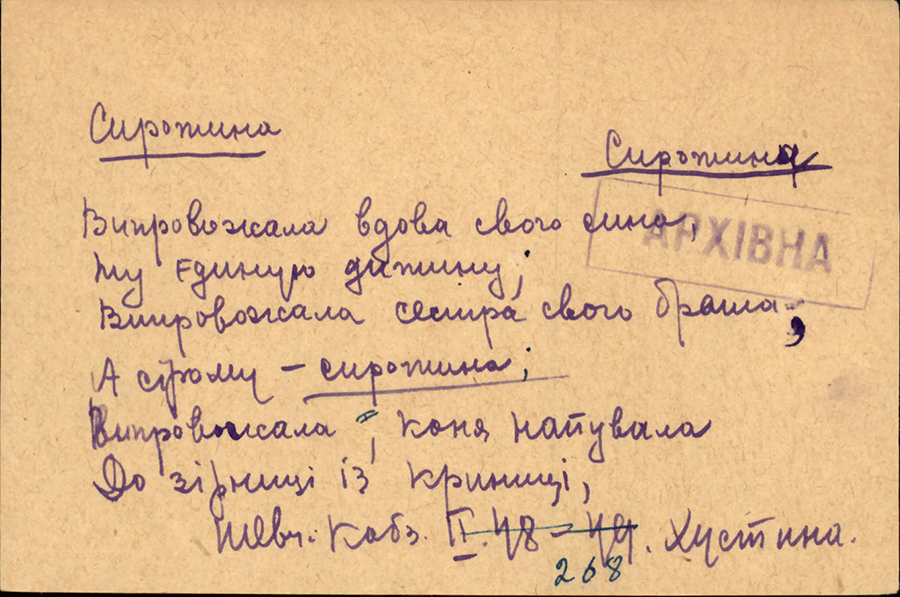 Сиротина
Сиротина
АРХІВНА
Випровожала вдова свого сина,
Ту єдиную дитину;
Випровожала сестра свого брата,
А сірому – сиротина;
Випровожала =, коня напувала
До зірниці із криниці,
Шевч. Кобз. II. 48 – 49. Хустина.
268